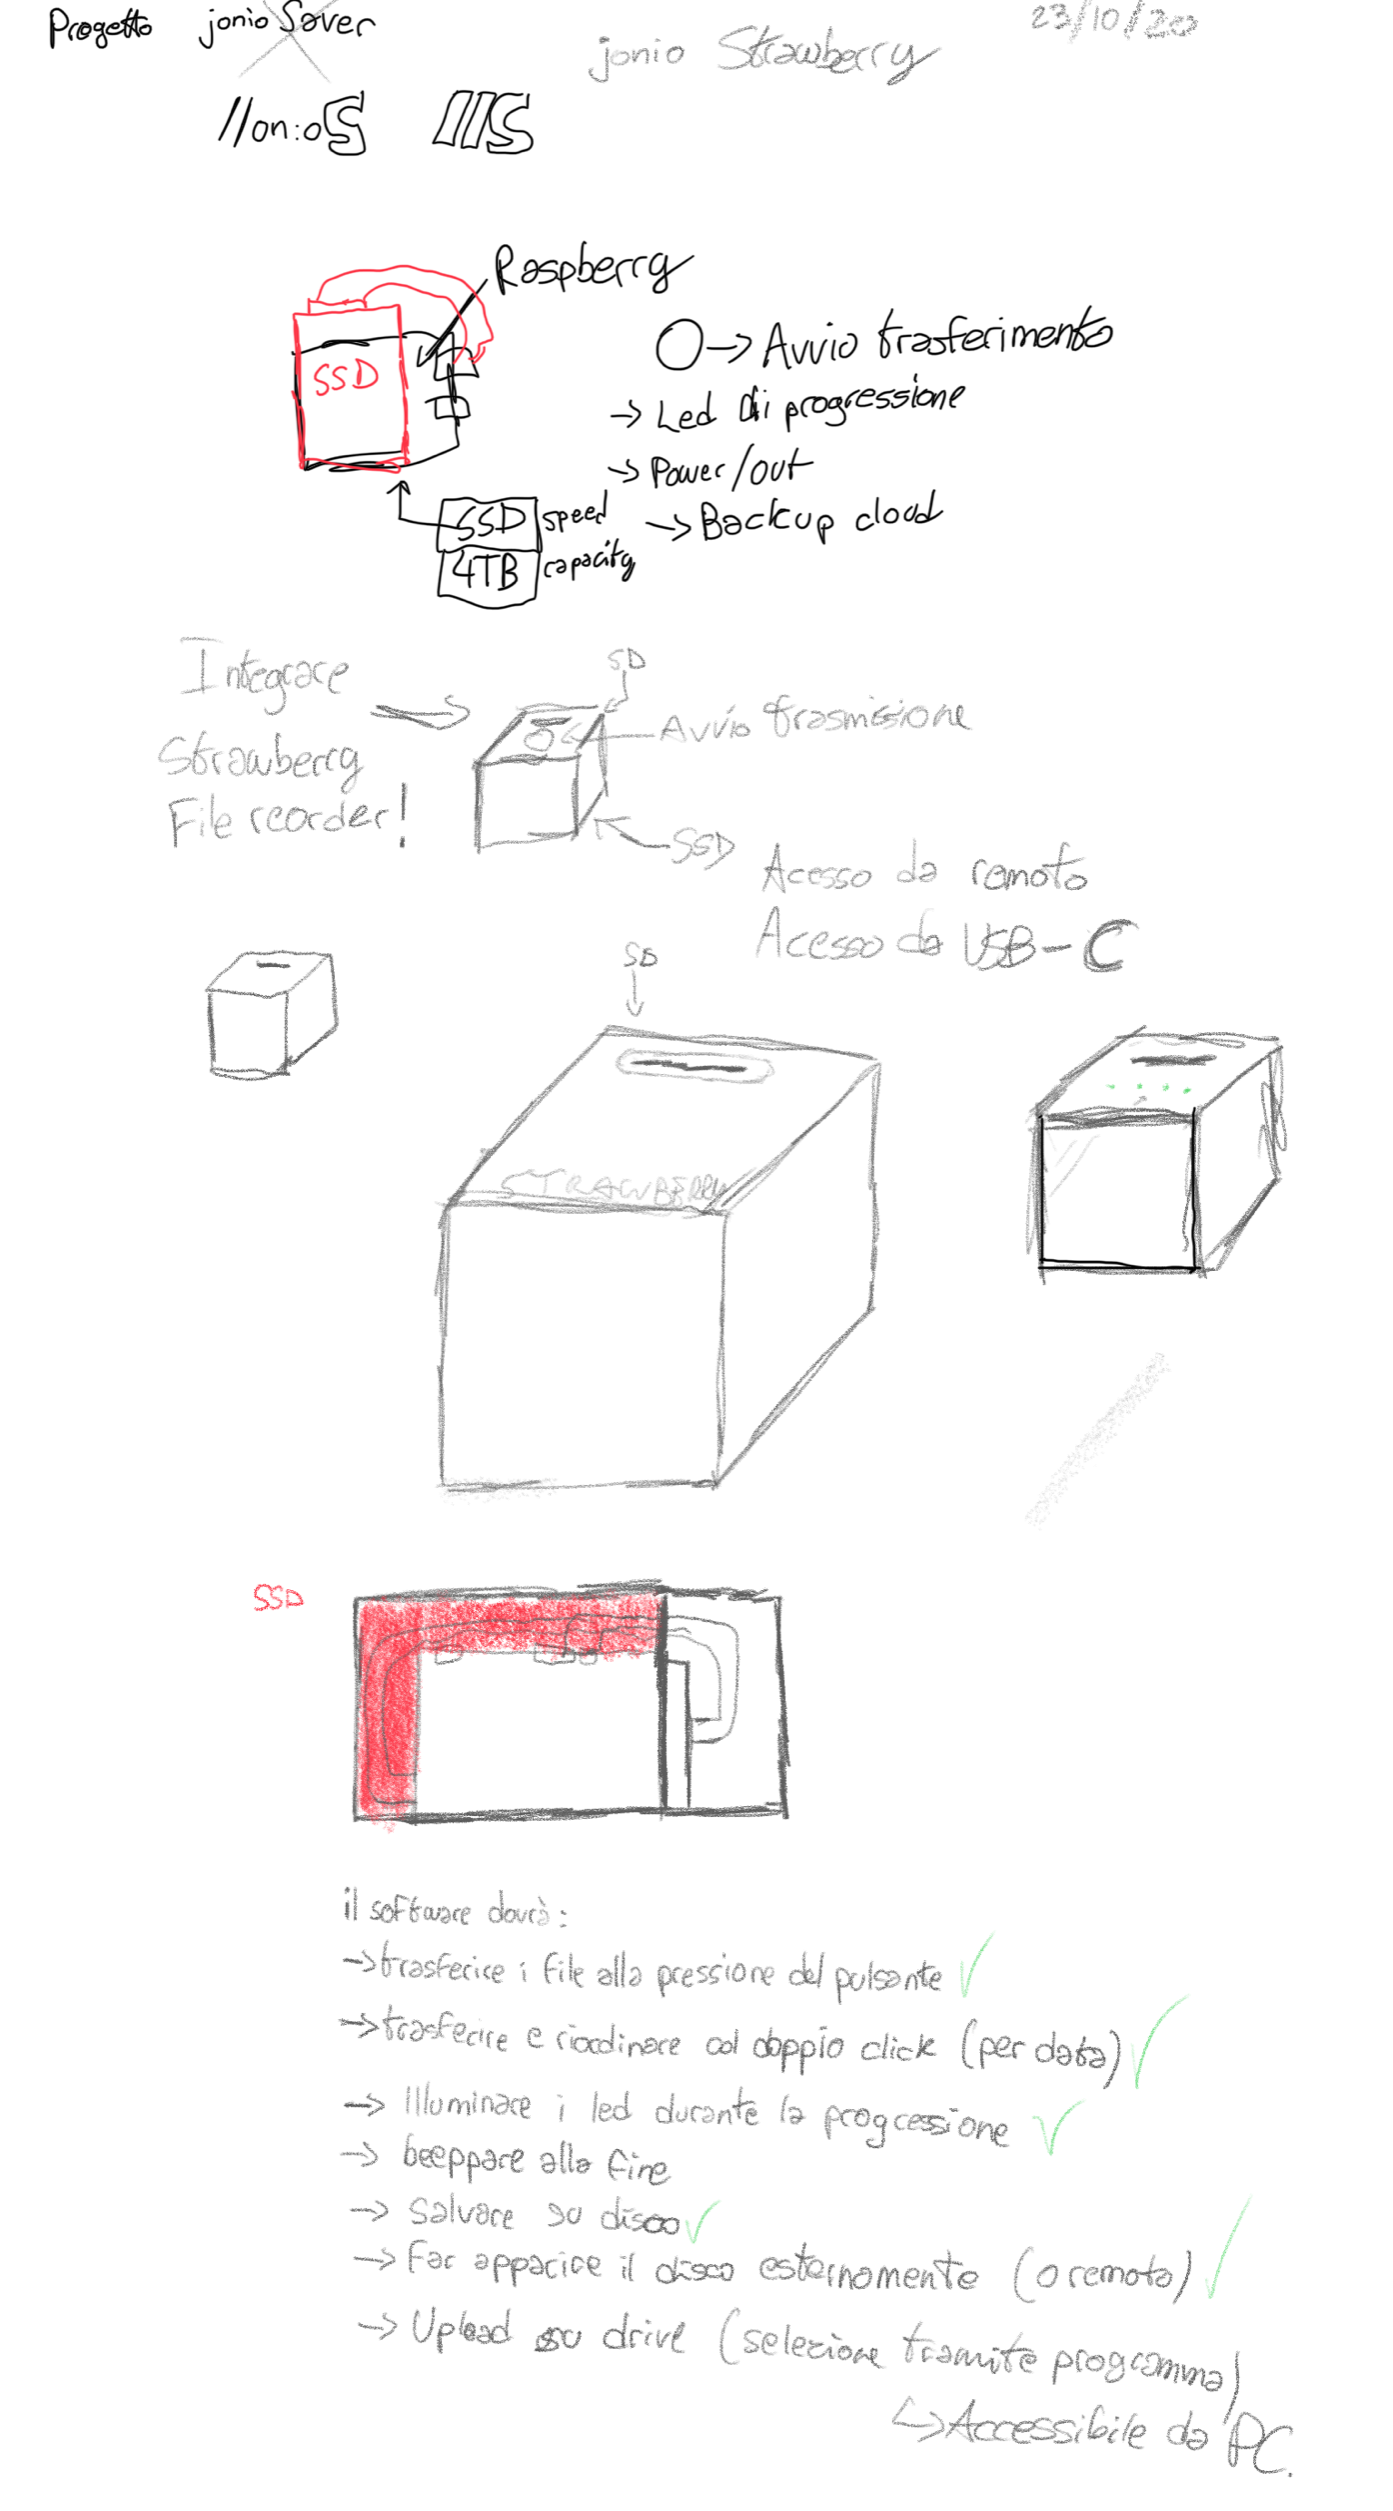 Progetto jonio Saver
jonio Strawberry
23/10/20
Jonio S
JJS
Raspberry
SSD
O→ Avvio trasferimento
→ Led di progressione
→ Power/out
→ Backup cloud
SSD speed
4TB capacity
Integrare
Strawberry
File reorder!
SD
Avvio trasmissione
SSD
Acesso da remoto
Acesso da USB-C
SD
STRAWBERRY
SSD
il software dovrà:
→ trasferire i file alla pressione del pulsante ✓
→ trasferire e riordinare col doppio click (per data) ✓
→ Illuminare i led durante la progressione ✓
→ beeppare alla fine
→ Salvare su disco ✓
→ Far apparire il disco esternamente (o remoto) ✓
→ Upload su drive (selezione tramite programma)
↳ Accessibile da PC.